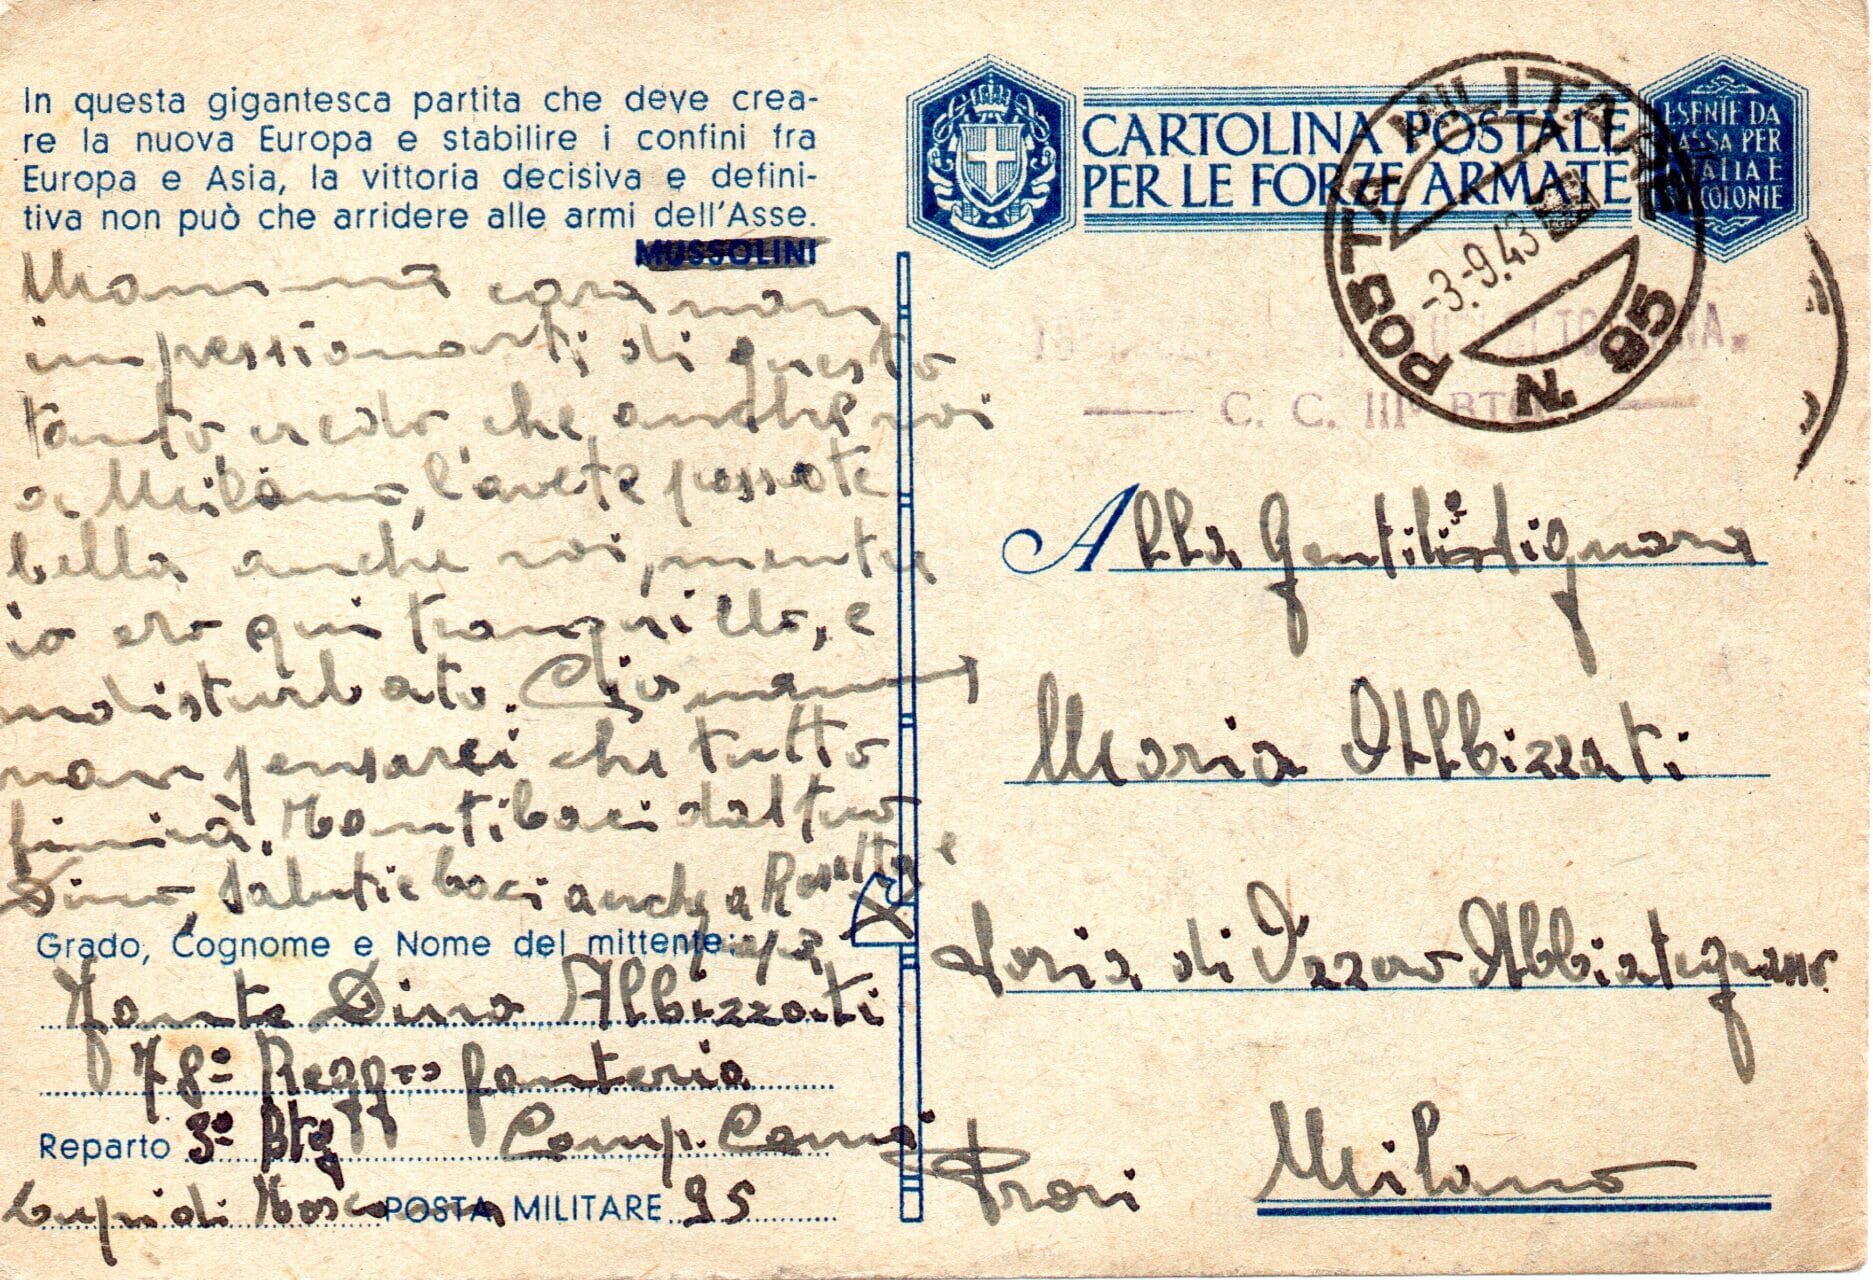 In questa gigantesca partita che deve crea-
re la nuova Europa e stabilire i confini fra
Europa e Asia, la vittoria decisiva e defini-
tiva non può che arridere alle armi dell'Asse.
MUSSOLINI
Mamma cara non
impessionarti di questo
tanto, credo che anche voi
a Milano, l'avete passate
bella anche voi, mentre
io ero qui tranquillo, e
indisturbato.
non pensarci che tutto
finirà. Tanti baci dal tuo
Dino, saluti e baci anche a e
papà
Grado, Cognome e Nome del mittente:
Fante Dino Albizzati
78º Regg.to fanteria
Reparto 3º Btg Comp.
Lupi di Toscana POSTA MILITARE 95
CARTOLINA POSTALE
PER LE FORZE ARMATE
ESENTE DA
TASSA PER
ITALIA E
COLONIE
POSTA MILITARE
-3.-9.43
N. 95
C. C. III BTG
Alla Gentile Signora
Maria Albizzati
di Abbiategrasso
Milano